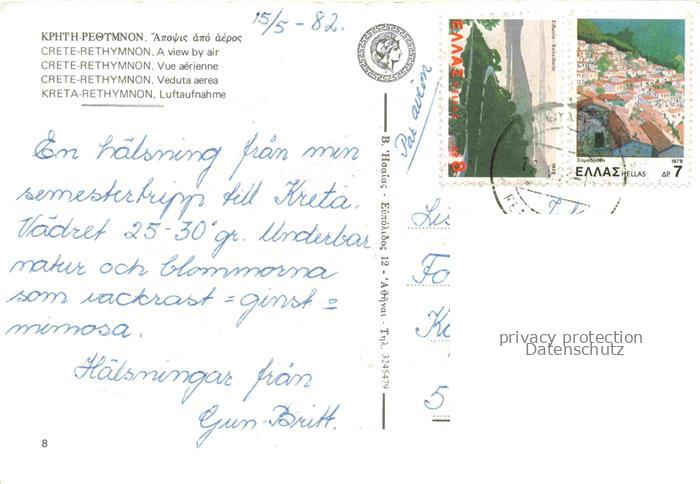 15/5 - 82.
ΚΡΗΤΗ-ΡΕΘΥΜΝΟΝ, Ἄποψις ἀπό ἀέρος
CRETE-RETHYMNON, A view by air
CRETE-RETHYMNON, Vue aérienne
CRETE-RETHYMNON, Veduta aerea
KRETA-RETHYMNON, Luftaufnahme
En hälsning från min
semestertripp till Kreta.
Vädret 25-30° gr. Underbar
natur och blommorna
som vackrast = ginst =
mimosa.
Hälsningar från
Gun-Britt.
8
Β. Ἡσαΐας - Εὐπόλιδος 12 - Ἀθῆναι - Τηλ. 3245479
Par avion
ΕΛΛΑΣ HELLAS ΔΡ 8
1979
Σιθωνία - Χαλκιδικῆς
Σαμοθράκη
1979
ΕΛΛΑΣ HELLAS ΔΡ 7
Lis
Fo
Ka
5
privacy protection
Datenschutz